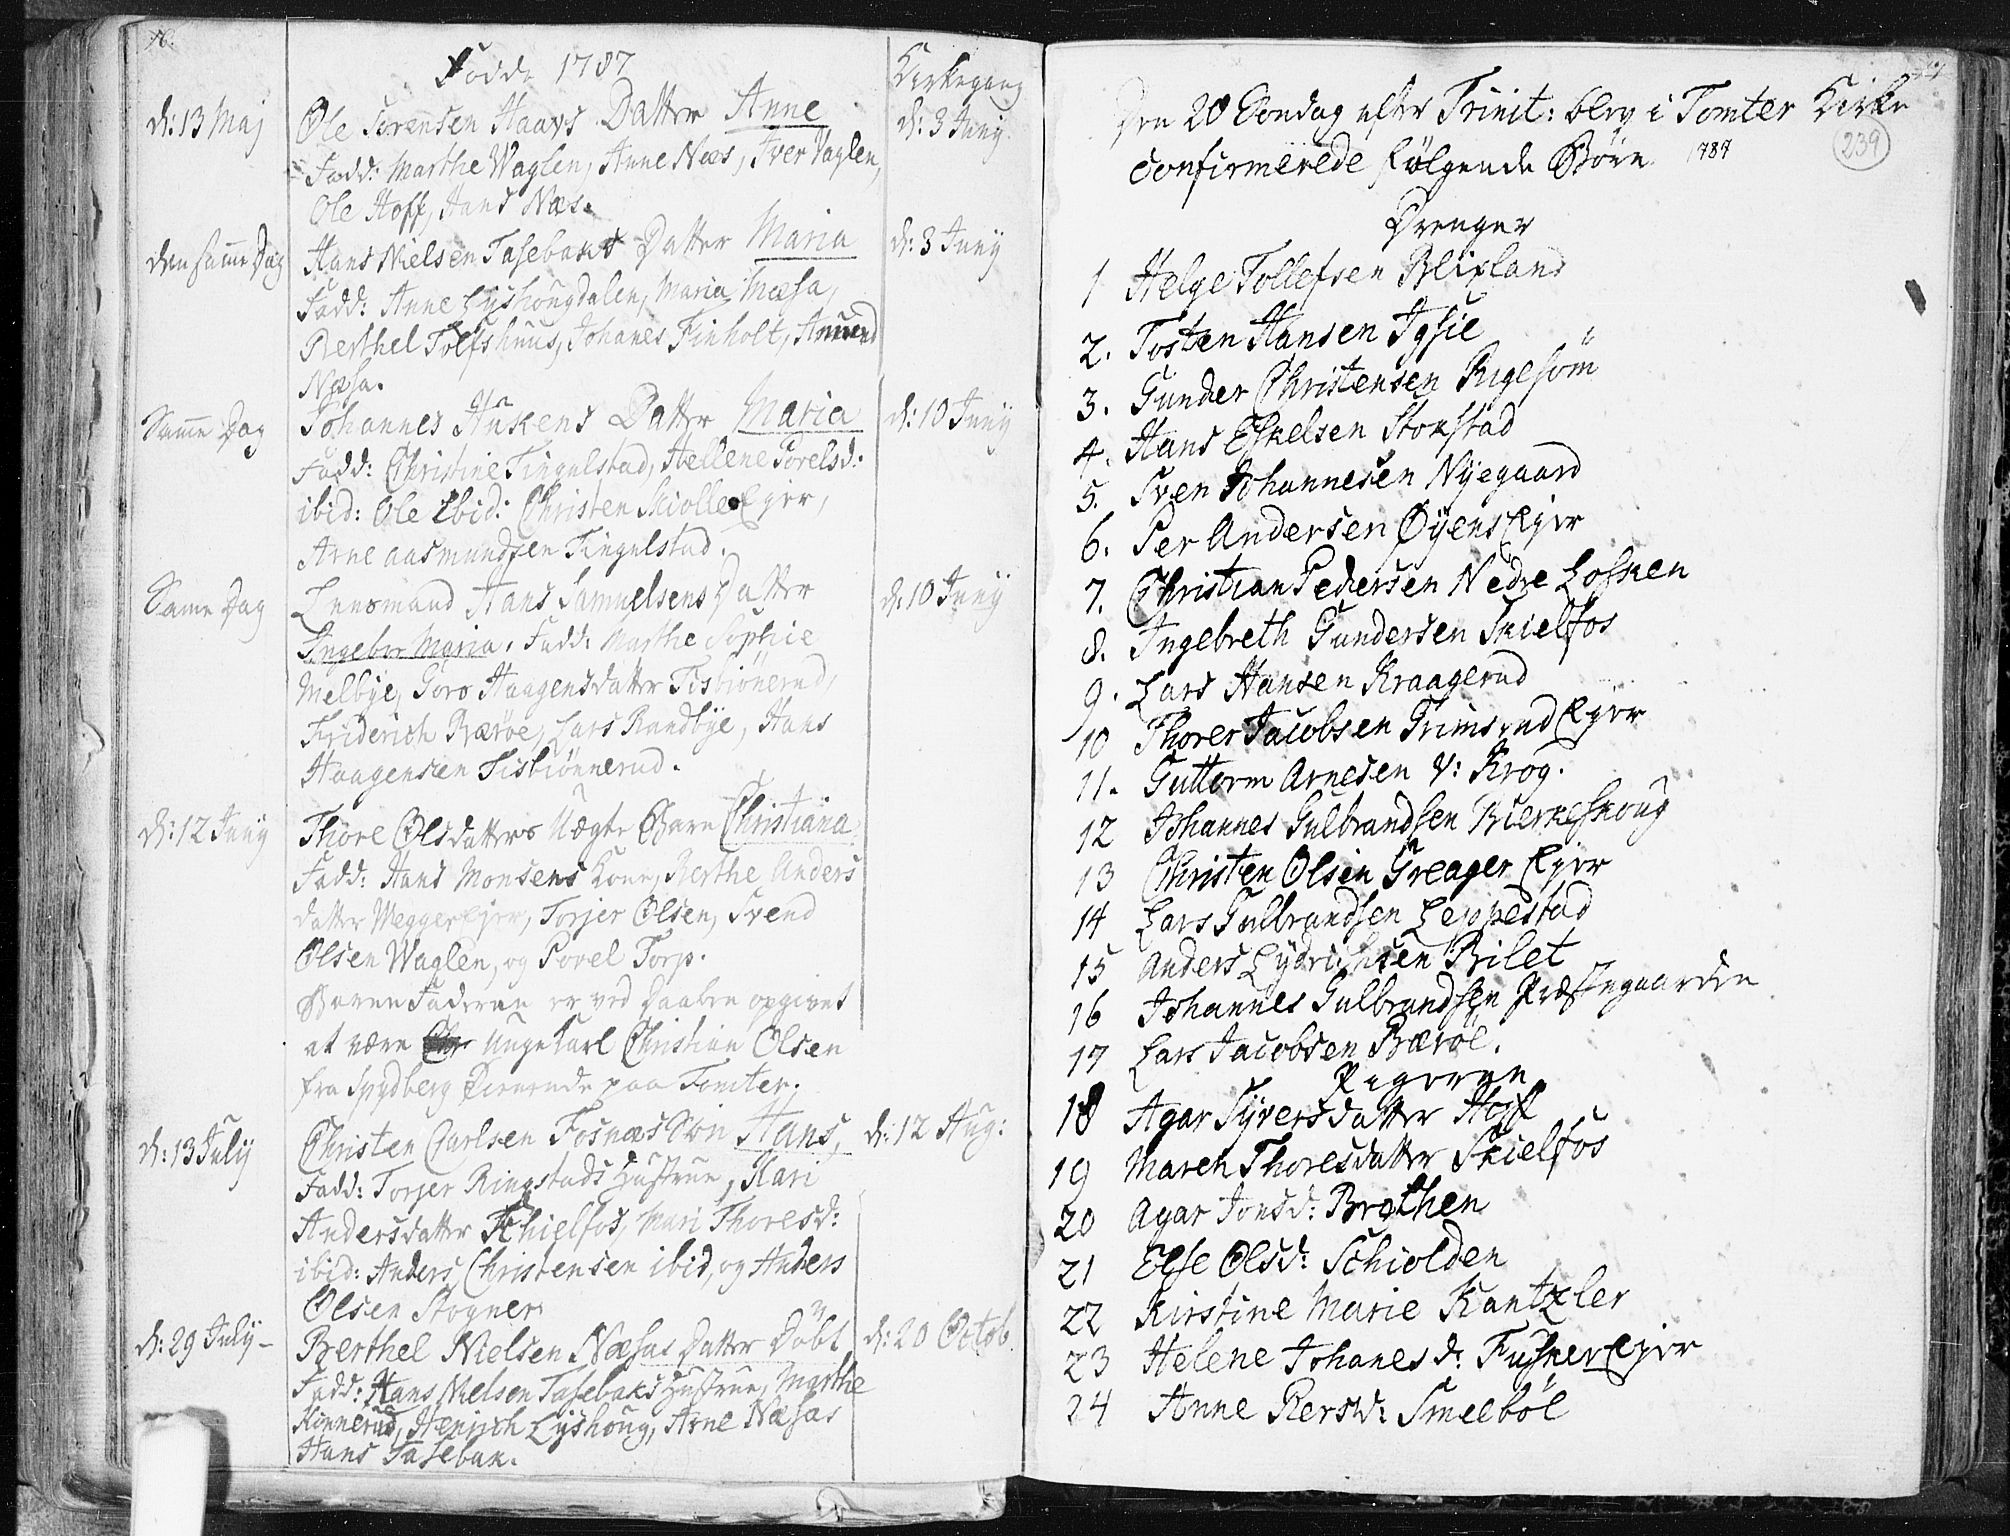 16.
Fødde 1787
Kirkegang
d: 13 Maj
Ole Sørensen Haavs Datter Anne
d: 3 Juny
Fadd: Marthe Waglen, Anne Næs, Iver Vaglen,
Ole Hoff, Hans Næs.
den same Dag
Hans Nielsen Tasebaks Datter Maria
d: 3 Juny
Fadd: Anne Lyshougdalen, Maria Næsa,
Berthel Tolfshuus, Johanes Finholt, Amund
Næsa.
Same Dag
Johannes Hukens Datter Maria
d: 10 Juny
Fadd: Christine Tingulstad, Hellene Povelsd:
ibid: Ole ibid: Christen Skiolle Ejer,
Arne Aasmundsen Tingulstad.
Same Dag
Lensmand Hans Samuelsens Datter
d: 10 Juny
Ingebor Maria. Fadd: Marthe Sophie
Melbye, Goro Haagensdatter Tisbiønerud,
Friderich Bærøe, Lars Randbye, Hans
Haagensen Tisbiønnerud.
d: 12 Juny
Thore Olsdatters Uægte Barn Christiana
Fadd: Hans Monsens Kone, Berthe Anders
datter Wegger Ejer, Torjer Olsen, Svend
Olsen Waglen, og Povel Torp.
Barne Faderen er ved Daaben opgivet
at være Unge Karl Christian Olsen
fra Spydberg tienende paa Tomter.
d: 13 July
Christen Carlsen Fosnæs Søn Hans,
d: 12 Aug:
Fadd: Torjer Ringstads Hustrue, Kari
Andersdatter Schielfos, Mari Thoresd:
ibid: Anders Christensen ibid, og Anders
Olsen Stogner
d: 29 July -
Berthel Nielsen Næsas Datter Døbt
d: 20 Octob.
Fadd: Hans Nielsen Tasebaks Hustrue, Marthe
Kinnerud, Henrich Lyshoug, Arne Næsas
Hans Tasebak.
17
Den 20 Søndag efter Trinit: blev i Tomter Kirke
239
confirmerede følgende Børn 1787
Drenger
1 Helge Tollefsen Blixland
2. Tosten Hansen Igsie
3. Gunder Christensen Rigesøm
4. Hans Eskelsen Stokstad
5. Sven Johannesen Nyegaard
6. Per Andersen Øyens Ejer
7. Christian Pedersen Nedre Lofsken
8. Ingebreth Gundersen Skielfos
9. Lars Hansen Kraagerud
10 Thorer Jacobsen Grimsrud Ejer
11. Guttorm Arnesen v: Krog.
12 Johannes Gulbrandsen Bierkeskoug
13 Christen Olsen Greager Ejer
14 Lars Gulbrandsen Leppestad
15 Anders Lydrichsen Brilet
16 Johannes Gulbrandsen Præstegaarden
17 Lars Jacobsen Bærøe.
Pigerne
18 Agar Syversdatter Hoff
19 Maren Thoresdatter Skielfos
20 Agar Jonsd: Brathen
21 Else Olsd: Schiolden
22 Kirstine Marie Kantzler
23 Helene Johanesd: Fusker Ejer
24 Anne Persd: Smeebøl